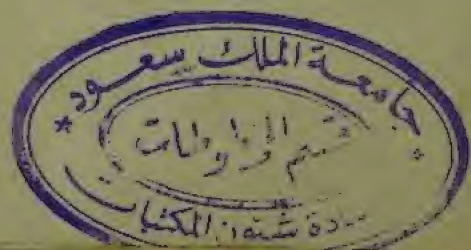 جامعة الملك سعود
قسم
شئون المكتبات